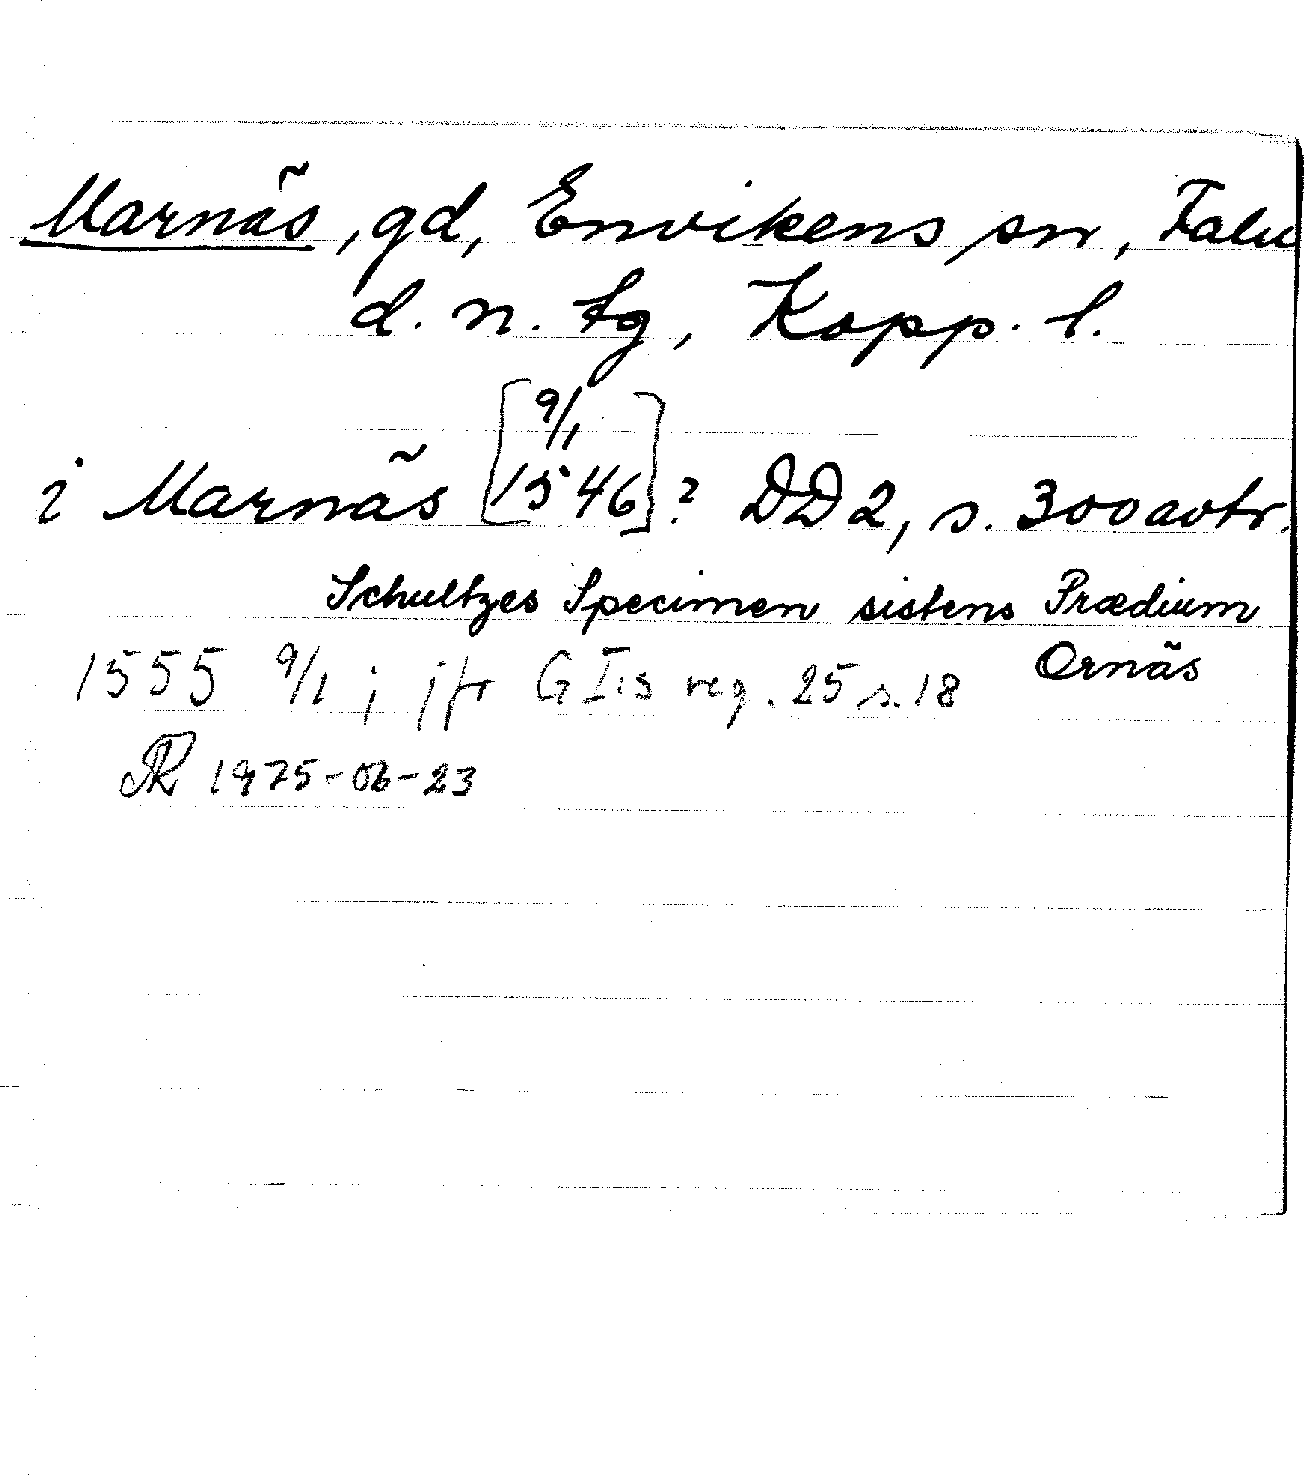 Marnäs, gd, Envikens sn, Falu
d. n. tg, Kopp. l.
i Marnäs [9/1 1546]? DD2, s. 300 avtr.
Schultzes Specimen sistens Prædium
Ornäs
1555 9/1; jfr G I:s reg. 25 s. 18
1975-06-23